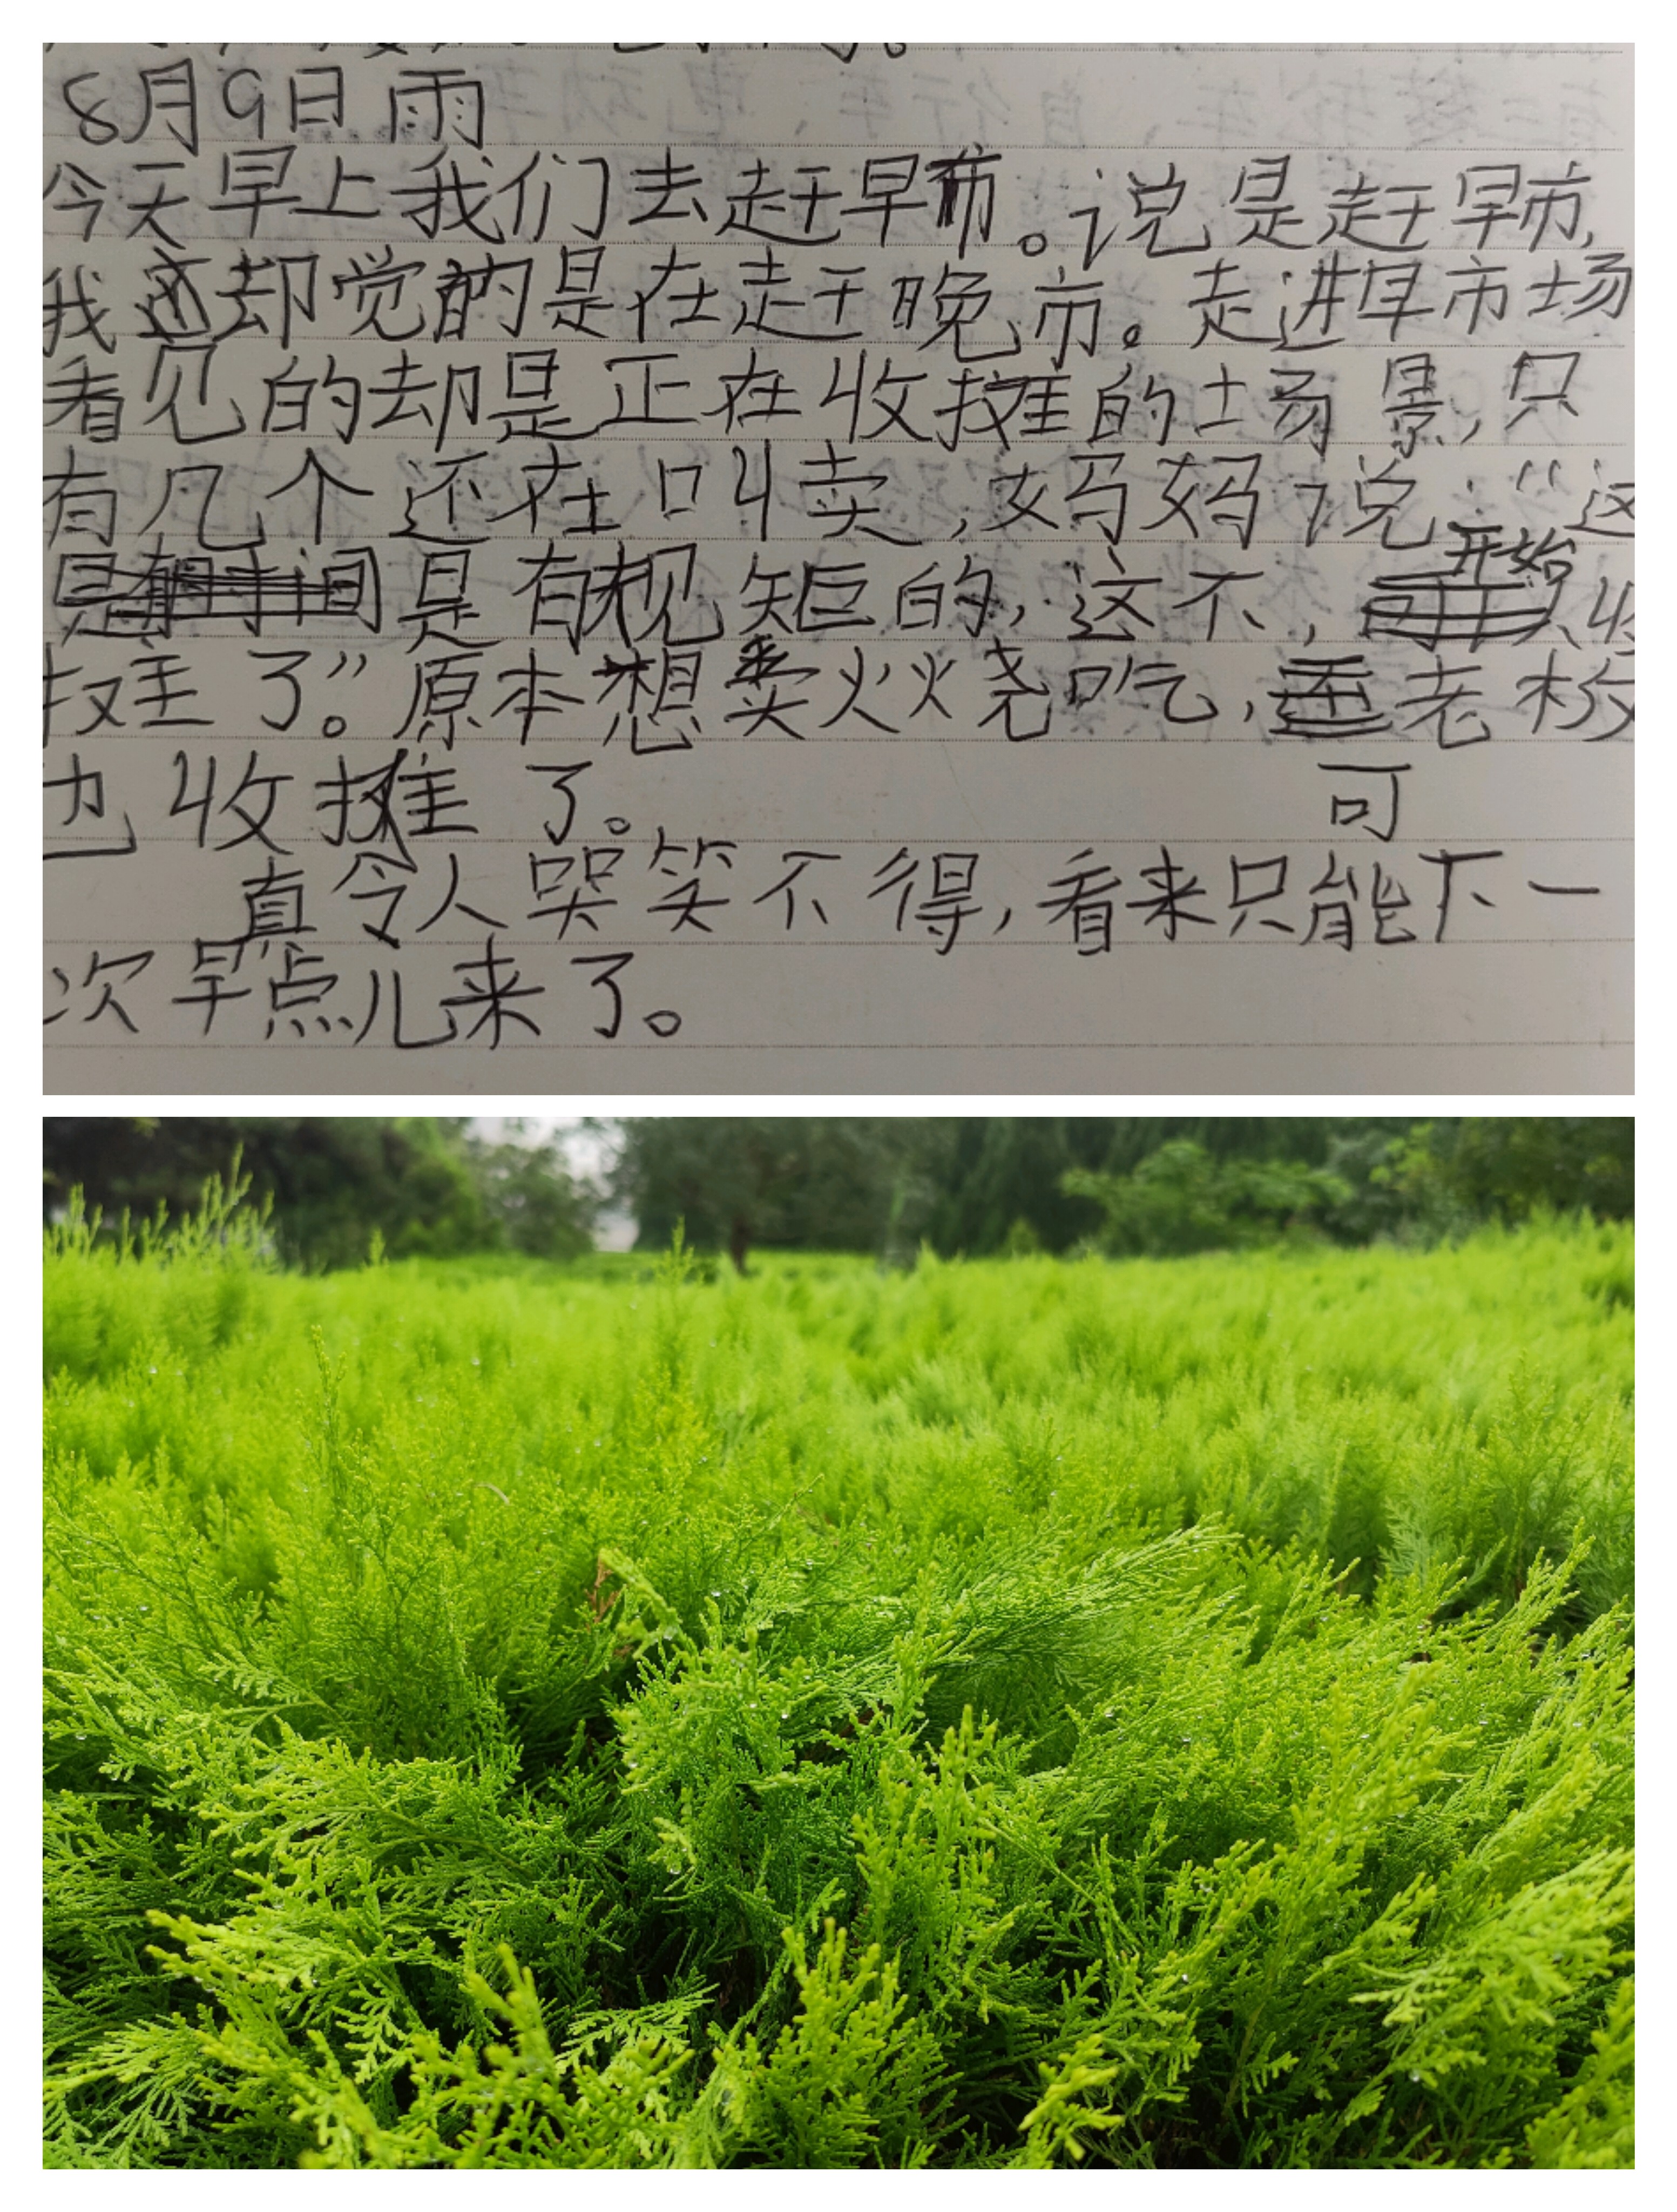 8月9日雨
今天早上我们去赶早市。说是赶早市,
我却觉的是在赶晚市。走进早市场
看见的却是正在收摊的场景,只
有几个还在叫卖,妈妈说:“这
是有规矩的,这不,开始收
摊了”。原本想卖火烧吃,老板
也收摊了。可
真令人哭笑不得,看来只能下一
次早点儿来了。